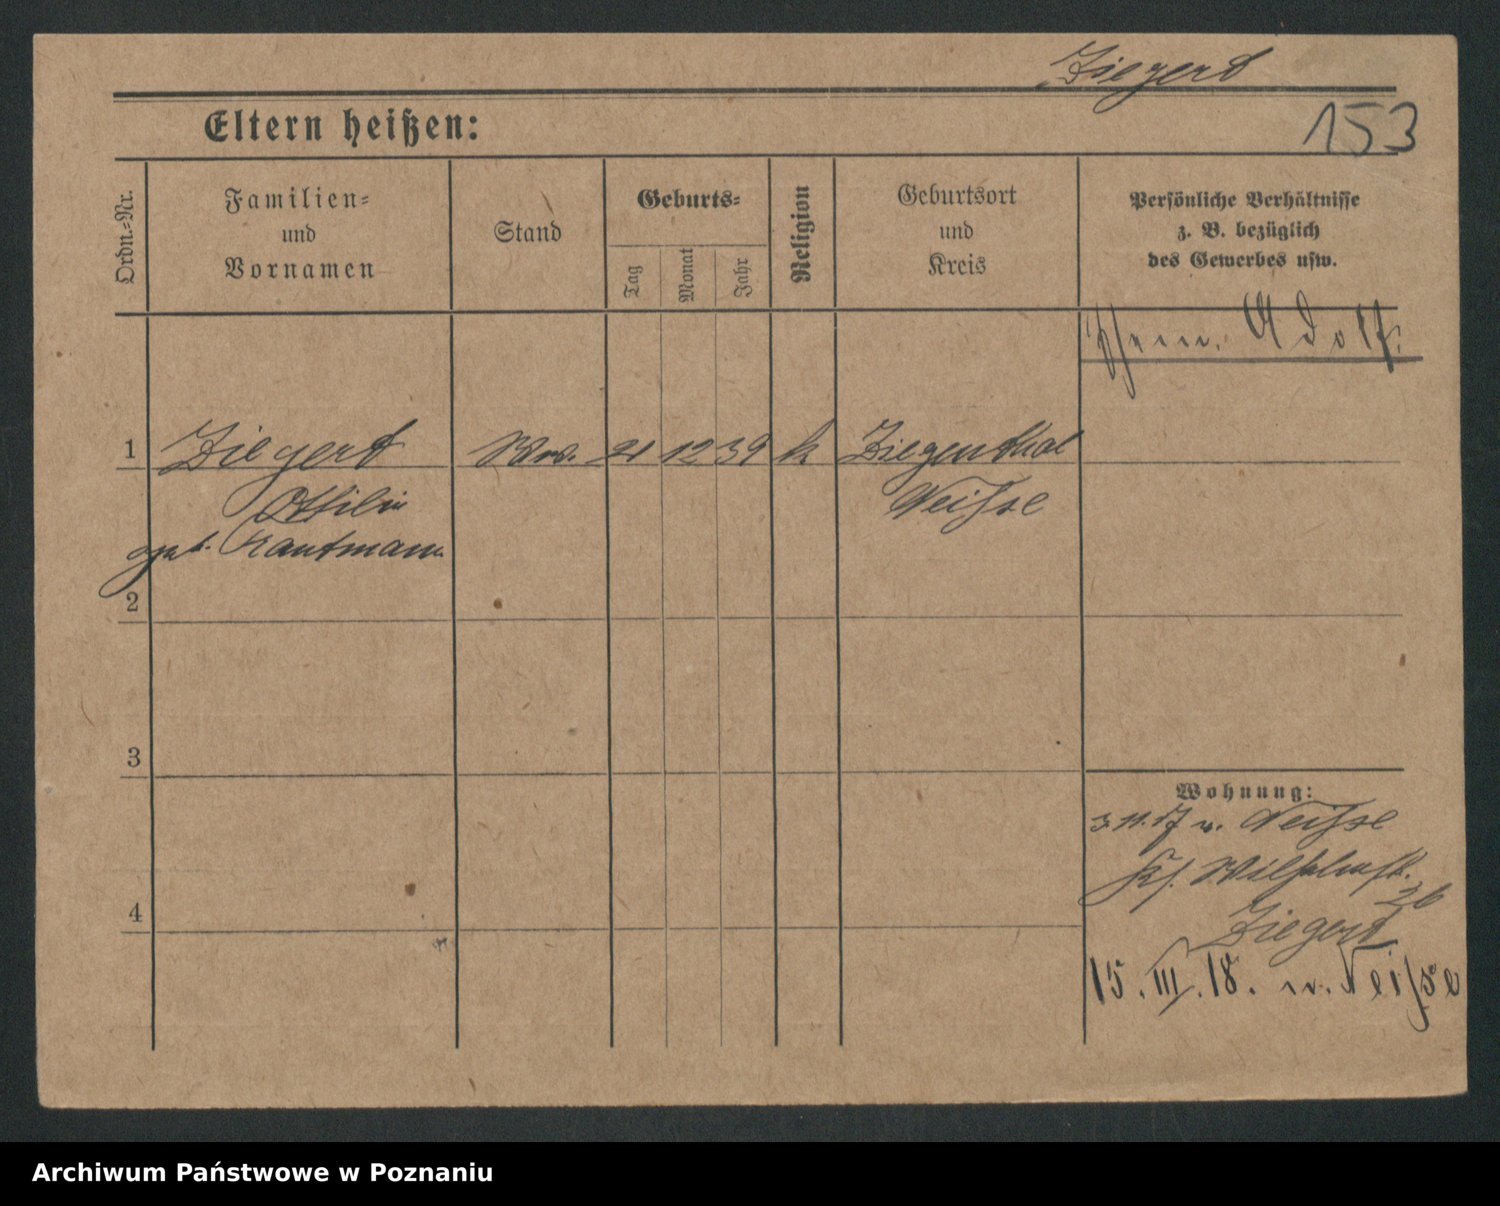 Ziegert
153
Eltern heißen:
Ordn.-Nr.
Familien-
und
Vornamen
Stand
Geburts-
Tag
Monat
Jahr
Religion
Geburtsort
und
Kreis
Persönliche Verhältnisse
z. B. bezüglich
des Gewerbes usw.
Ehem. Adolf.
1
Ziegert
Ww.
21
12
39
k
Ziegenhal
Ottilie
Neisse
geb. Kautmann
2
3
4
Wohnung:
3.11.17 v. Neisse
Wilhelmstr.
26
Ziegert
15. III. 18. n. Neisse
Archiwum Państwowe w Poznaniu